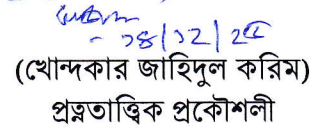 - ১৪/১২/২৫
(খোন্দকার জাহিদুল করিম)
প্রত্নতাত্ত্বিক প্রকৌশলী